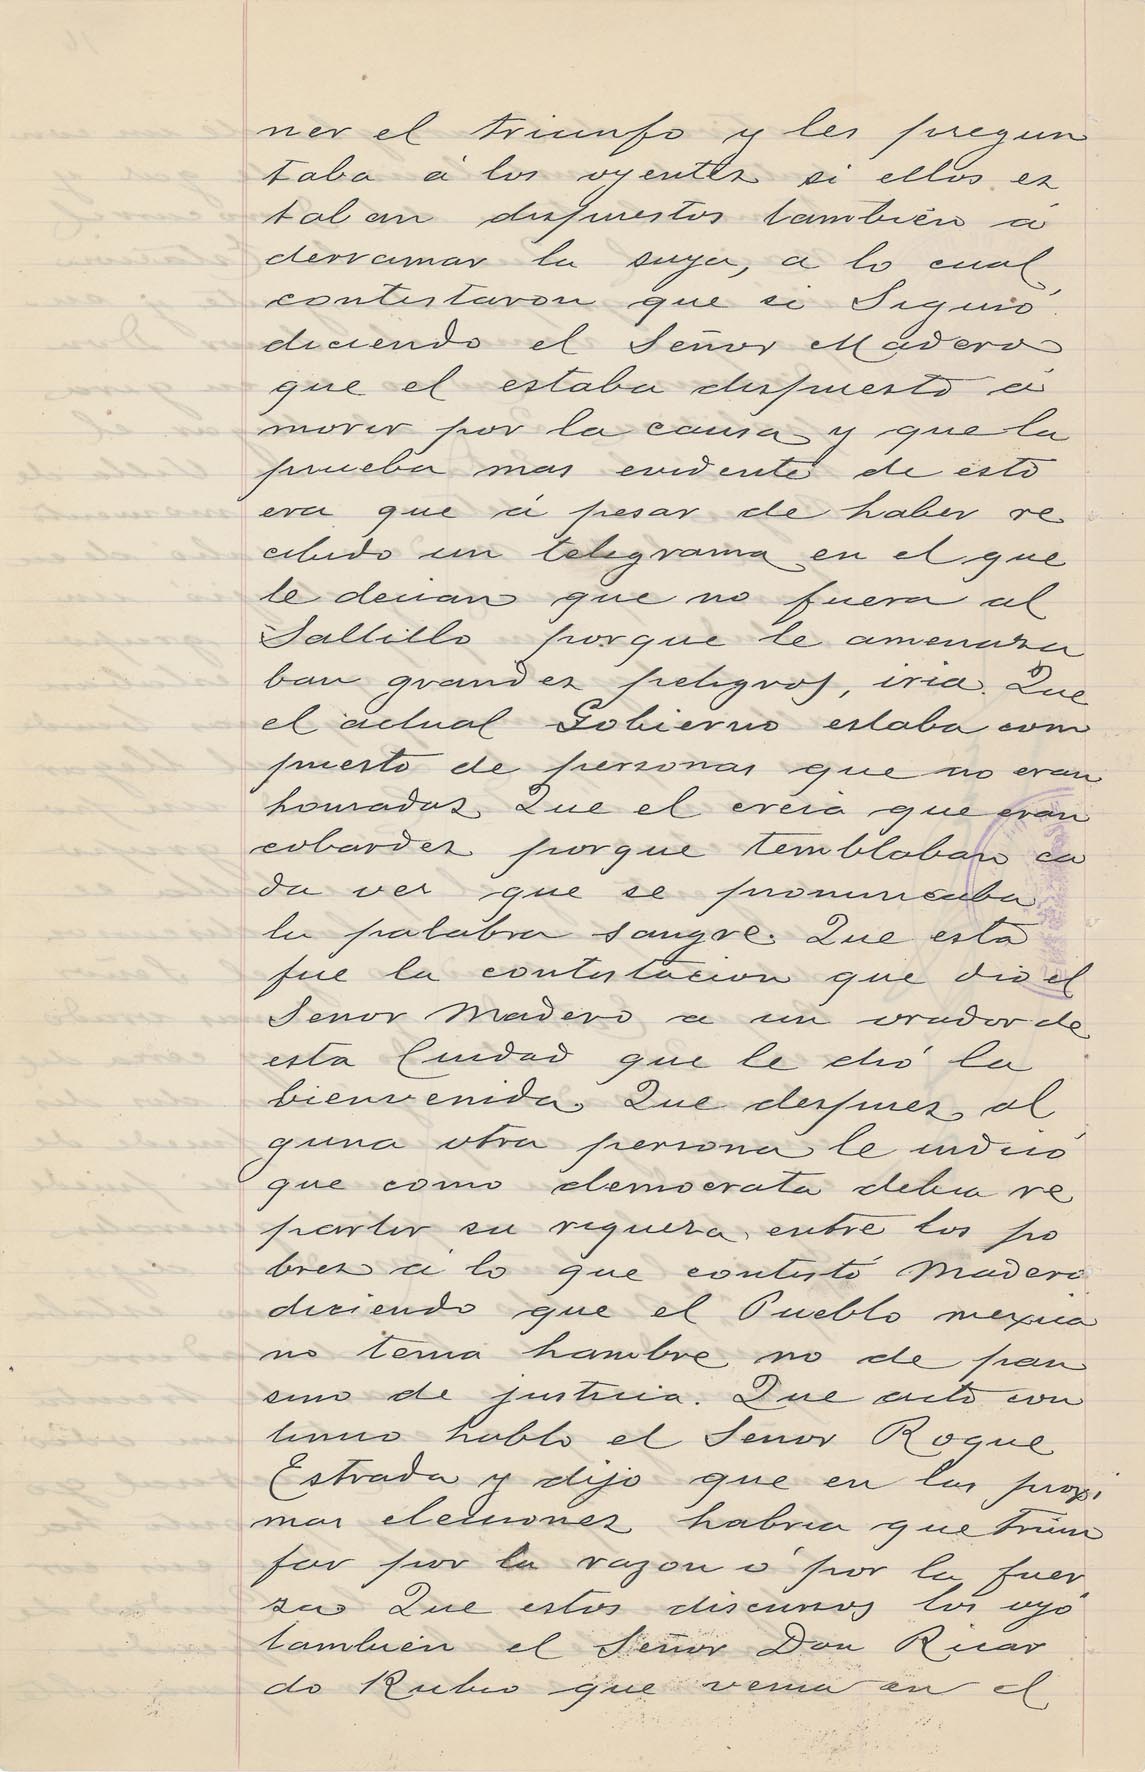 ner el triunfo y les pregun
taba á los oyentes si ellos es
taban dispuestos también á
derramar la suya, a lo cual
contestaron que si Siguió
diciendo el Señor Madero
que el estaba dispuesto á
morir por la causa y que la
prueba mas evidente de esto
era que á pesar de haber re
cibido un telegrama en el que
le decian que no fuera al
Saltillo porque le amenaza
ban grandes peligros, iria. Que
el actual Gobierno estaba com
puesto de personas que no eran
honradas Que el creia que eran
cobardes porque temblaban ca
da vez que se pronunciaba
la palabra sangre. Que esta
fue la contestacion que dio el
Senor Madero a un orador de
esta Ciudad que le dió la
bienvenida. Que despues al
guna otra persona le indicó
que como democrata debia re
partir su riqueza entre los po
bres á lo que contestó Madero
diciendo que el Pueblo mexica
no tenia hambre no de pan
sino de justicia. Que acto con
tinuo hablo el Senor Roque
Estrada y dijo que en las proxi
mas elecciones habria que triun
far por la razon ó por la fuer
za Que estos discursos los oyó
también el Señor Don Ricar
do Rubio que venia en el